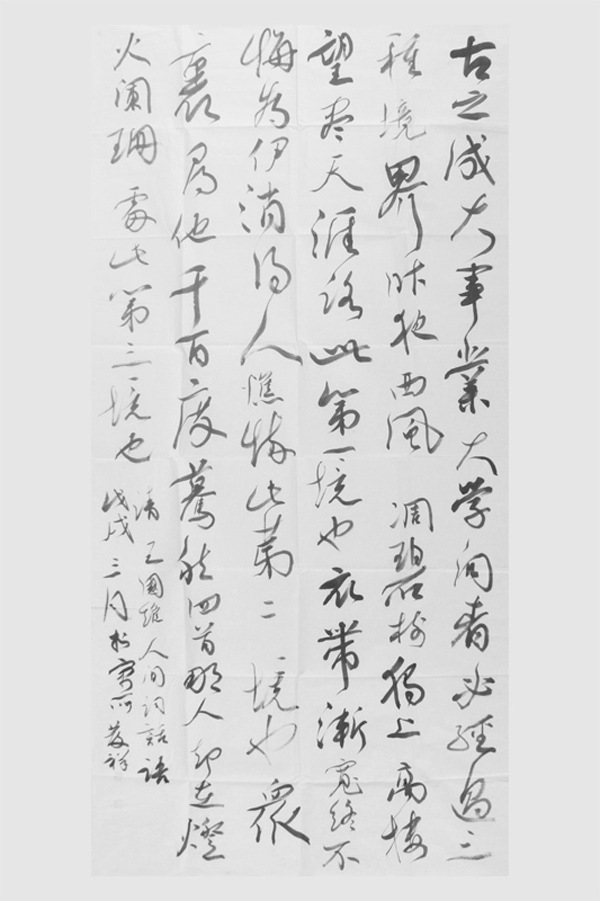 古之成大事業大学问者必經過三
種境界昨夜西風凋碧树獨上高楼
望盡天涯路此第一境也衣帶漸寬終不
悔為伊消得人憔悴此第二境也眾
裏尋他千百度驀然回首那人却在燈
火闌珊處此第三境也
清王國維人间词話语
戊戌三月於